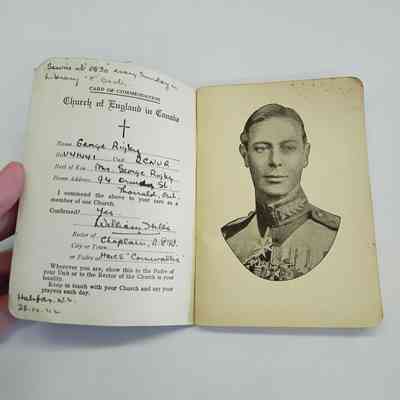 Service at 0830 every Sunday in
Library "O" Deck
CARD OF COMMENDATION
Church of England in Canada
Name George Rigby
No V44441 Unit RCNVR
Next of Kin Mrs. George Rigby
Home Address 94 Ormond St
Thorold, Ont.
I commend the above to your care as a
member of our Church.
Confirmed? Yes
William Hills
Rector of Chaplain, R.C.N.
City or Town
or Padre H.M.C.S "Cornwallis"
Wherever you are, show this to the Padre of
your Unit or to the Rector of the Church in your
locality.
Keep in touch with your Church and say your
prayers each day.
Halifax, N.S.